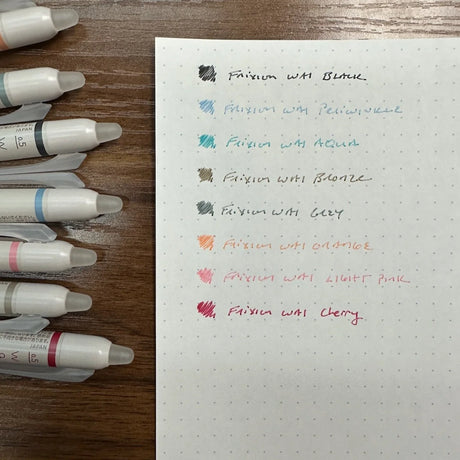 JAPAN
0.5
W
JAPAN
0.5
W
Frixion WAI Black
Frixion WAI Periwinkle
Frixion WAI Aqua
Frixion WAI Bronze
Frixion WAI Grey
Frixion WAI Orange
Frixion WAI Light Pink
Frixion WAI Cherry